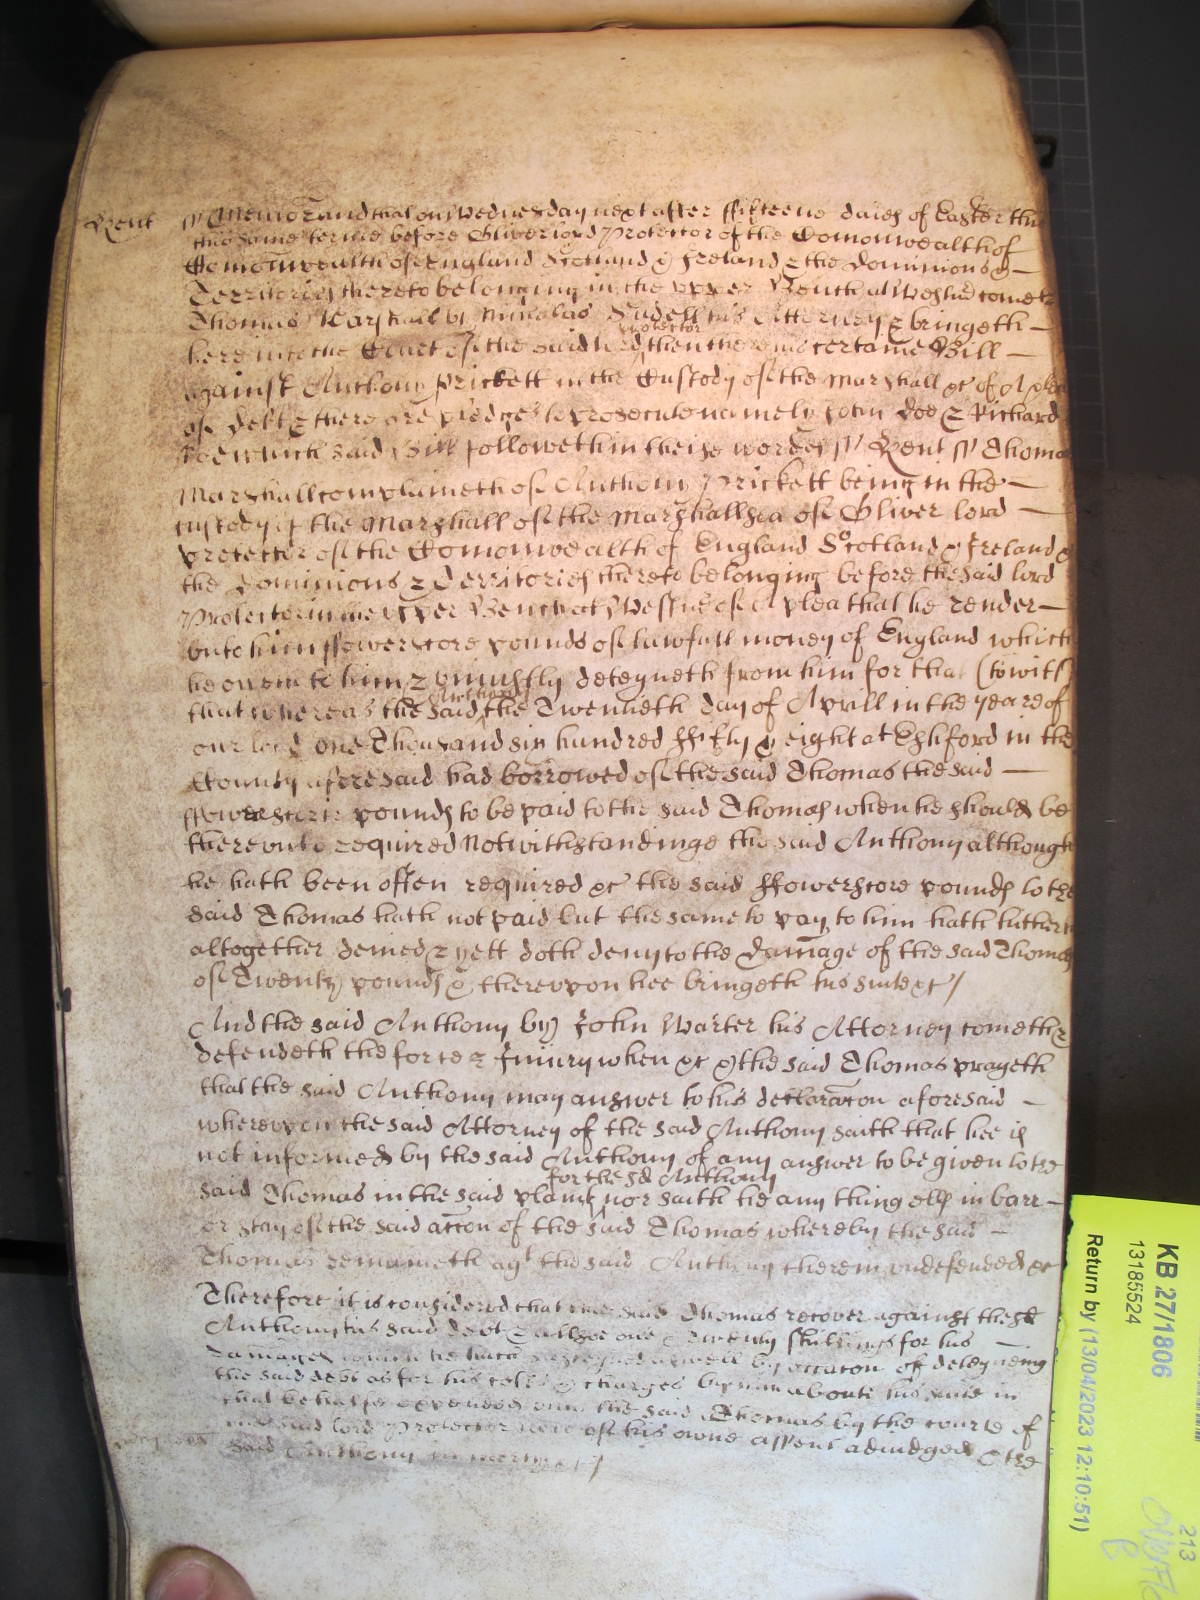 Kent ss Memorand that on Wednesday next after ffifteene daies of Easter this
this same terme before Oliver lord Protector of the Comonwealth of
Comonwealth of England Scotland & Ireland & the Dominions &
Territories thereto belonging in the upper Bench at Westmr cometh
Thomas Marshall by Nicholas Sudell his Attorney & bringeth
protector
here into the Court of the said lord then there his certaine Bill
against Anthony Prickett in the Custody of the Marshall &c of A plea
of debt & there are pledges to prosecute namely John Doe & Richard
Roe which said Bill followeth in theise wordes ss Kent ss Thomas
Marshall complaineth of Anthony Prickett being in the
custody of the Marshall of the Marshallsea of Oliver lord
protector of the Comonwealth of England Scotland & Ireland &
the Dominions & Territories thereto belonging before the said lord
Protector in the upper Bench at Westmr of A plea that he render
unto him ffowerscore pounds of lawfull money of England which
he oweth to him & uniustly deteyneth from him for that (towitt)
Anthony
that whereas the said the Twentieth day of Aprill in the yeare of
our lord one Thousand six hundred ffifty & eight at Ashford in the
County aforesaid had borrowed of the said Thomas the said
ffowerscore pounds to be paid to the said Thomas when he should be
thereunto required Notwithstandinge the said Anthony although
he hath been often required &c the said ffowerscore pounds to the
said Thomas hath not paid but the same to pay to him hath hitherto
altogether denied & yett doth deny to the damage of the said Thomas
of Twenty pounds & thereupon hee bringeth his suite &c /
And the said Anthony by John Warter his Attorney cometh &
defendeth the force & Iniury when &c & the said Thomas prayeth
that the said Anthony may answer to his declaracon aforesaid
whereupon the said Attorney of the said Anthony saith that hee is
not informed by the said Anthony of any answer to be given to the
for the sd Anthony
said Thomas in the said plaint nor saith he any thing els in barr
or stay of the said accon of the said Thomas whereby the said
Thomas remaineth agt the said Anthony therein undefended &c
Therefore it is considered that the said Thomas recover against the sd
Anthony his said debt & allsoe one & shillings for his
damages which he hath susteyned aswell by occacon of deteyneing
the said debt as for his costs & charges by him about his suite in
that behalfe expended unto the said Thomas by the courte of
the said lord Protector here of his owne assent adiudged & the
said Anthony in mercy &c /
KB 27/1806
13185524
Return by (13/04/2023 12:10:51)
213